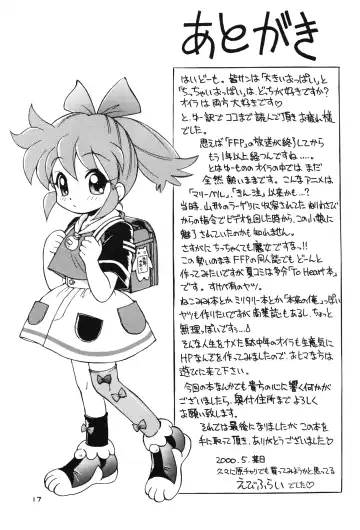 あとがき
はいどーも。皆サンは「大きいおっぱい」と
「ちっちゃいおっぱい」は、どっちが好きですか？
オイラは両方大好きです♡
と、牛訳でココまで読んで頂きお疲れ様
でした。
思えば「FFP」の放送が終了してから
もう1年以上経つんですね…。
とはゆーものの、オイラの中ではまだ
全然熱いままです。こんなアニメは
「マリーベル」、以来かも…?
当時、山形の
からの指令でビデオを回した時から、この小娘に
魅了されていたのかも知れません。
さすがにちっちゃくても魔女ですなっ!!
この勢いのままFFPの同人誌でもどーんと
作ってみたいですが夏コミは多分「To Heart本」
です。
ねこみみ本とかミリタリー本とか「本来の俺」っぽい
ヤツも作りたいですが、商業誌もあるし、ちょっと
無理っぽいですぅ…♪
そんな人生をナメた駄中年のオイラも生意気に
HPなんぞを作ってみましたので、おヒマな方は
遊びに来て下さい。
今回の本なんかでも貴方の心に響く何かが
ございましたら、奥付住所までよろしく
お願い致します。
それでは最後になりましたが、この本を
手に取って頂き、ありがとうございました♡
2000.5.某日
久々に原チャリでも買ってみようかと思ってる
えびふらいでした♡
17